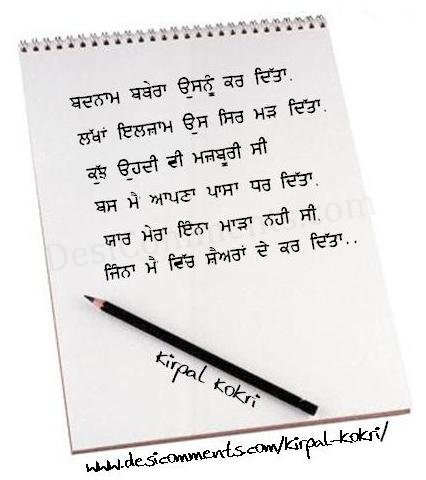 ਬਦਨਾਮ ਬਥੇਰਾ ਉਸਨੂੰ ਕਰ ਦਿੱਤਾ.
ਲੱਖਾਂ ਇਲਜ਼ਾਮ ਉਸ ਸਿਰ ਮੜ ਦਿੱਤਾ.
ਕੁੱਝ ਉਹਦੀ ਵੀ ਮਜ਼ਬੂਰੀ ਸੀ
ਬਸ ਮੈ ਆਪਣਾ ਪਾਸਾ ਧਰ ਦਿੱਤਾ.
ਯਾਰ ਮੇਰਾ ਇੰਨਾ ਮਾੜਾ ਨਹੀ ਸੀ.
ਜਿੰਨਾ ਮੈ ਵਿੱਚ ਸ਼ੈਅਰਾਂ ਦੇ ਕਰ ਦਿੱਤਾ..
Kirpal Kokri
www.desicomments.com/kirpal-kokri/